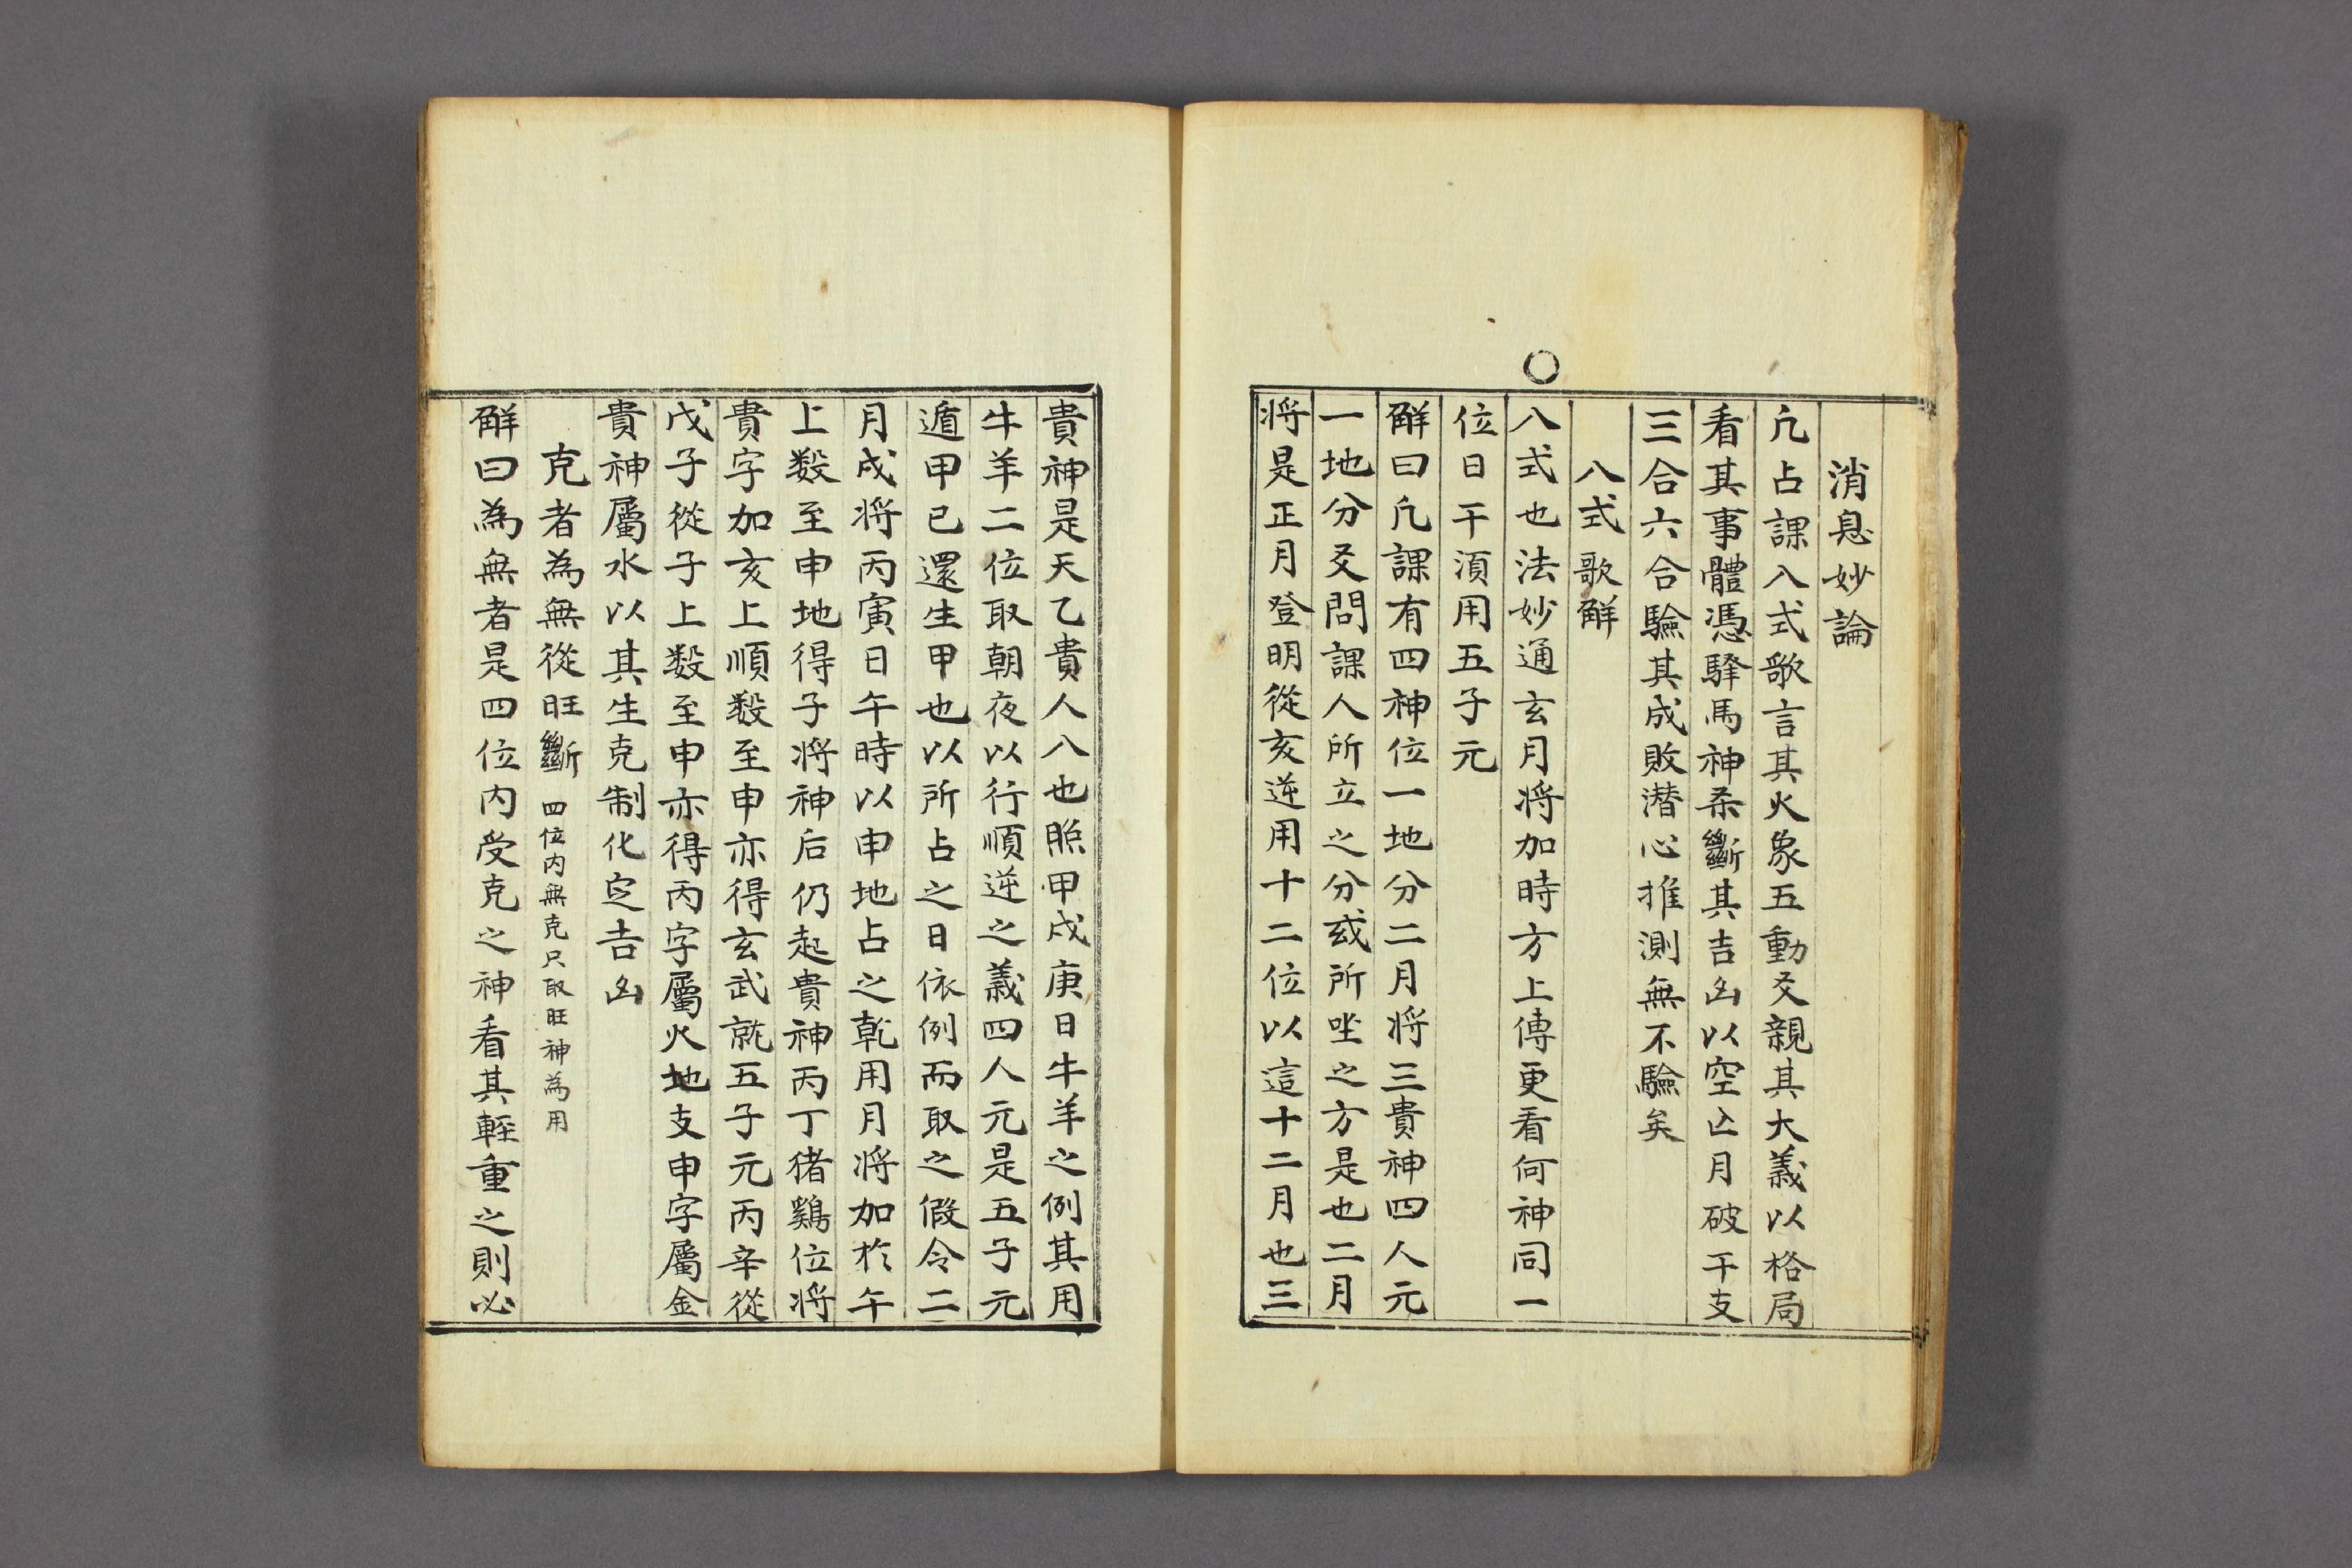 消息妙論
凢占課八式歌言其火象五動爻親其大義以格局
看其事體憑驛馬神杀斷其吉凶以空亾月破干支
三合六合驗其成敗潛心推測無不驗矣
八式歌觧
○八式也法妙通玄月将加時方上傳更看何神同一
位日干湏用五子元
觧曰凢課有四神位一地分二月将三貴神四人元
一地分爻問課人所立之分或所坐之方是也二月
将是正月登明從亥逆用十二位以這十二月也三
貴神是天乙貴人八也照甲戌庚日牛羊之例其用
牛羊二位取朝夜以行順逆之義四人元是五子元
遁甲已還生甲也以所占之日依例而取之假令二
月戌将丙寅日午時以申地占之乾用月将加於午
上数至申地得子将神后仍起貴神丙丁猪鷄位将
貴字加亥上順数至申亦得玄武就五子元丙辛從
戊子從子上数至申亦得丙字屬火地支申字屬金
貴神屬水以其生克制化㝎吉凶
克者為無從旺斷四位内無克只取旺神為用
觧曰為無者是四位内受克之神看其輊重之則必